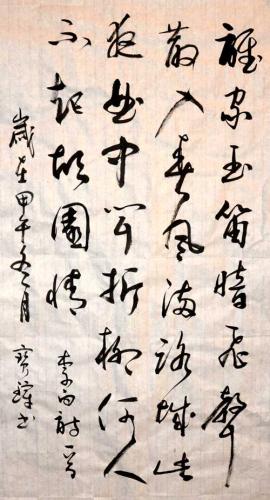 誰家玉笛暗飛聲
散入春風滿洛城此
夜曲中聞折柳何人
不起故園情 李白詩一首
歲在甲午冬月 書